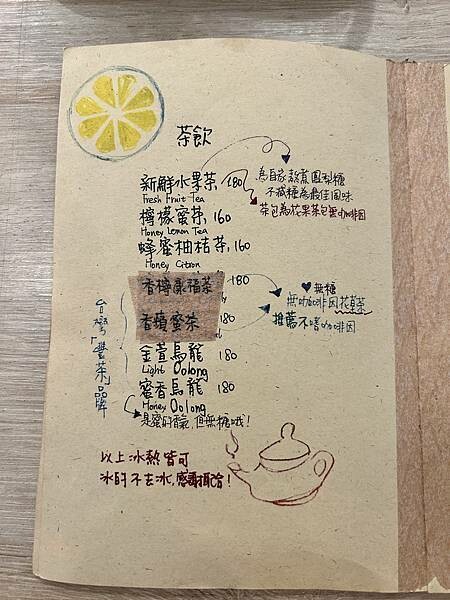 茶飲
新鮮水果茶 180
Fresh Fruit Tea
為自家熬煮鳳梨糖
不減糖為最佳風味
茶包為花果茶包無咖啡因
檸檬蜜茶 160
Honey Lemon Tea
蜂蜜柚桔茶 160
Honey Citron
香檸康福茶 180
♥無糖
無咖啡因花草茶
推薦不嗜咖啡因
香蘋蜜茶 180
金萱烏龍 180
Light Oolong
蜜香烏龍 180
Honey Oolong
是蜜的香氣,但無糖哦!
台灣「豐茶」品牌
以上冰熱皆可
冰的不去冰,感謝擔待!